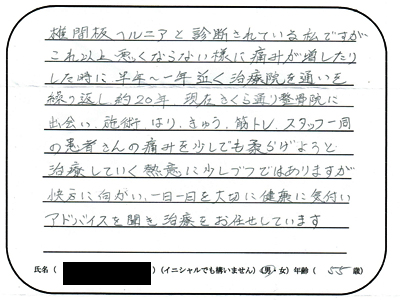 椎間板ヘルニアと診断されている私ですが
これ以上悪くならない様に痛みが増したり
した時に半年〜一年近く治療院を通いを
繰り返し約20年 現在さくら通り整骨院に
出会い、施術 はり、きゅう、筋トレ、スタッフ一同
の患者さんの痛みを少しでも柔らげようと
治療していく熱意に少しづつではありますが
快方に向かい、一日一日を大切に健康に気付い
アドバイスを聞き治療をお任せしています
氏名( )(イニシャルでも構いません)(男・女)年齢( 55 歳)